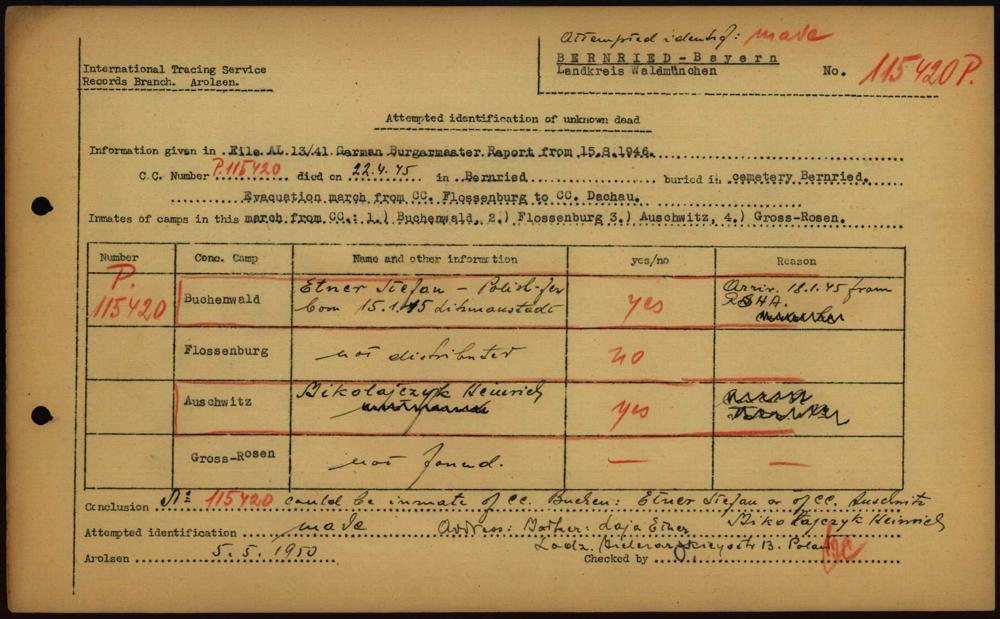 Attempted identif: made
BERNRIED-Bayern
Landkreis Waldmünchen
International Tracing Service
Records Branch. Arolsen.
No. 115420 P.
Attempted identification of unknown dead
Information given in File AL 13/41 German Burgermeater Report from 15.8.1946.
C.C. Number P.115420 died on 22.4.45 in Bernried buried in cemetery Bernried.
Evacuation march from CC. Flossenburg to CC. Dachau.
Inmates of camps in this march from CC.: 1.) Buchenwald, 2.) Flossenburg 3.) Auschwitz, 4.) Gross-Rosen.
Number Conc. Camp Name and other information yes/no Reason
P. 115420
Buchenwald Etner Stefan - Polish-
born 15.1. Litzmannstadt
yes
Arriv. 18.1.45 from
RSHA.
Flossenburg not distributed no
Auschwitz Mikolajczyk Heinrich yes
Gross-Rosen not found. — —
Conclusion No 115420 could be inmate of CC. Buchen: Etner Stefan or of CC. Auschwitz
Mikolajczyk Heinrich
Attempted identification made Address: Laja Etner
Lodz, 13. Poland
Arolsen 5.5.1950 Checked by